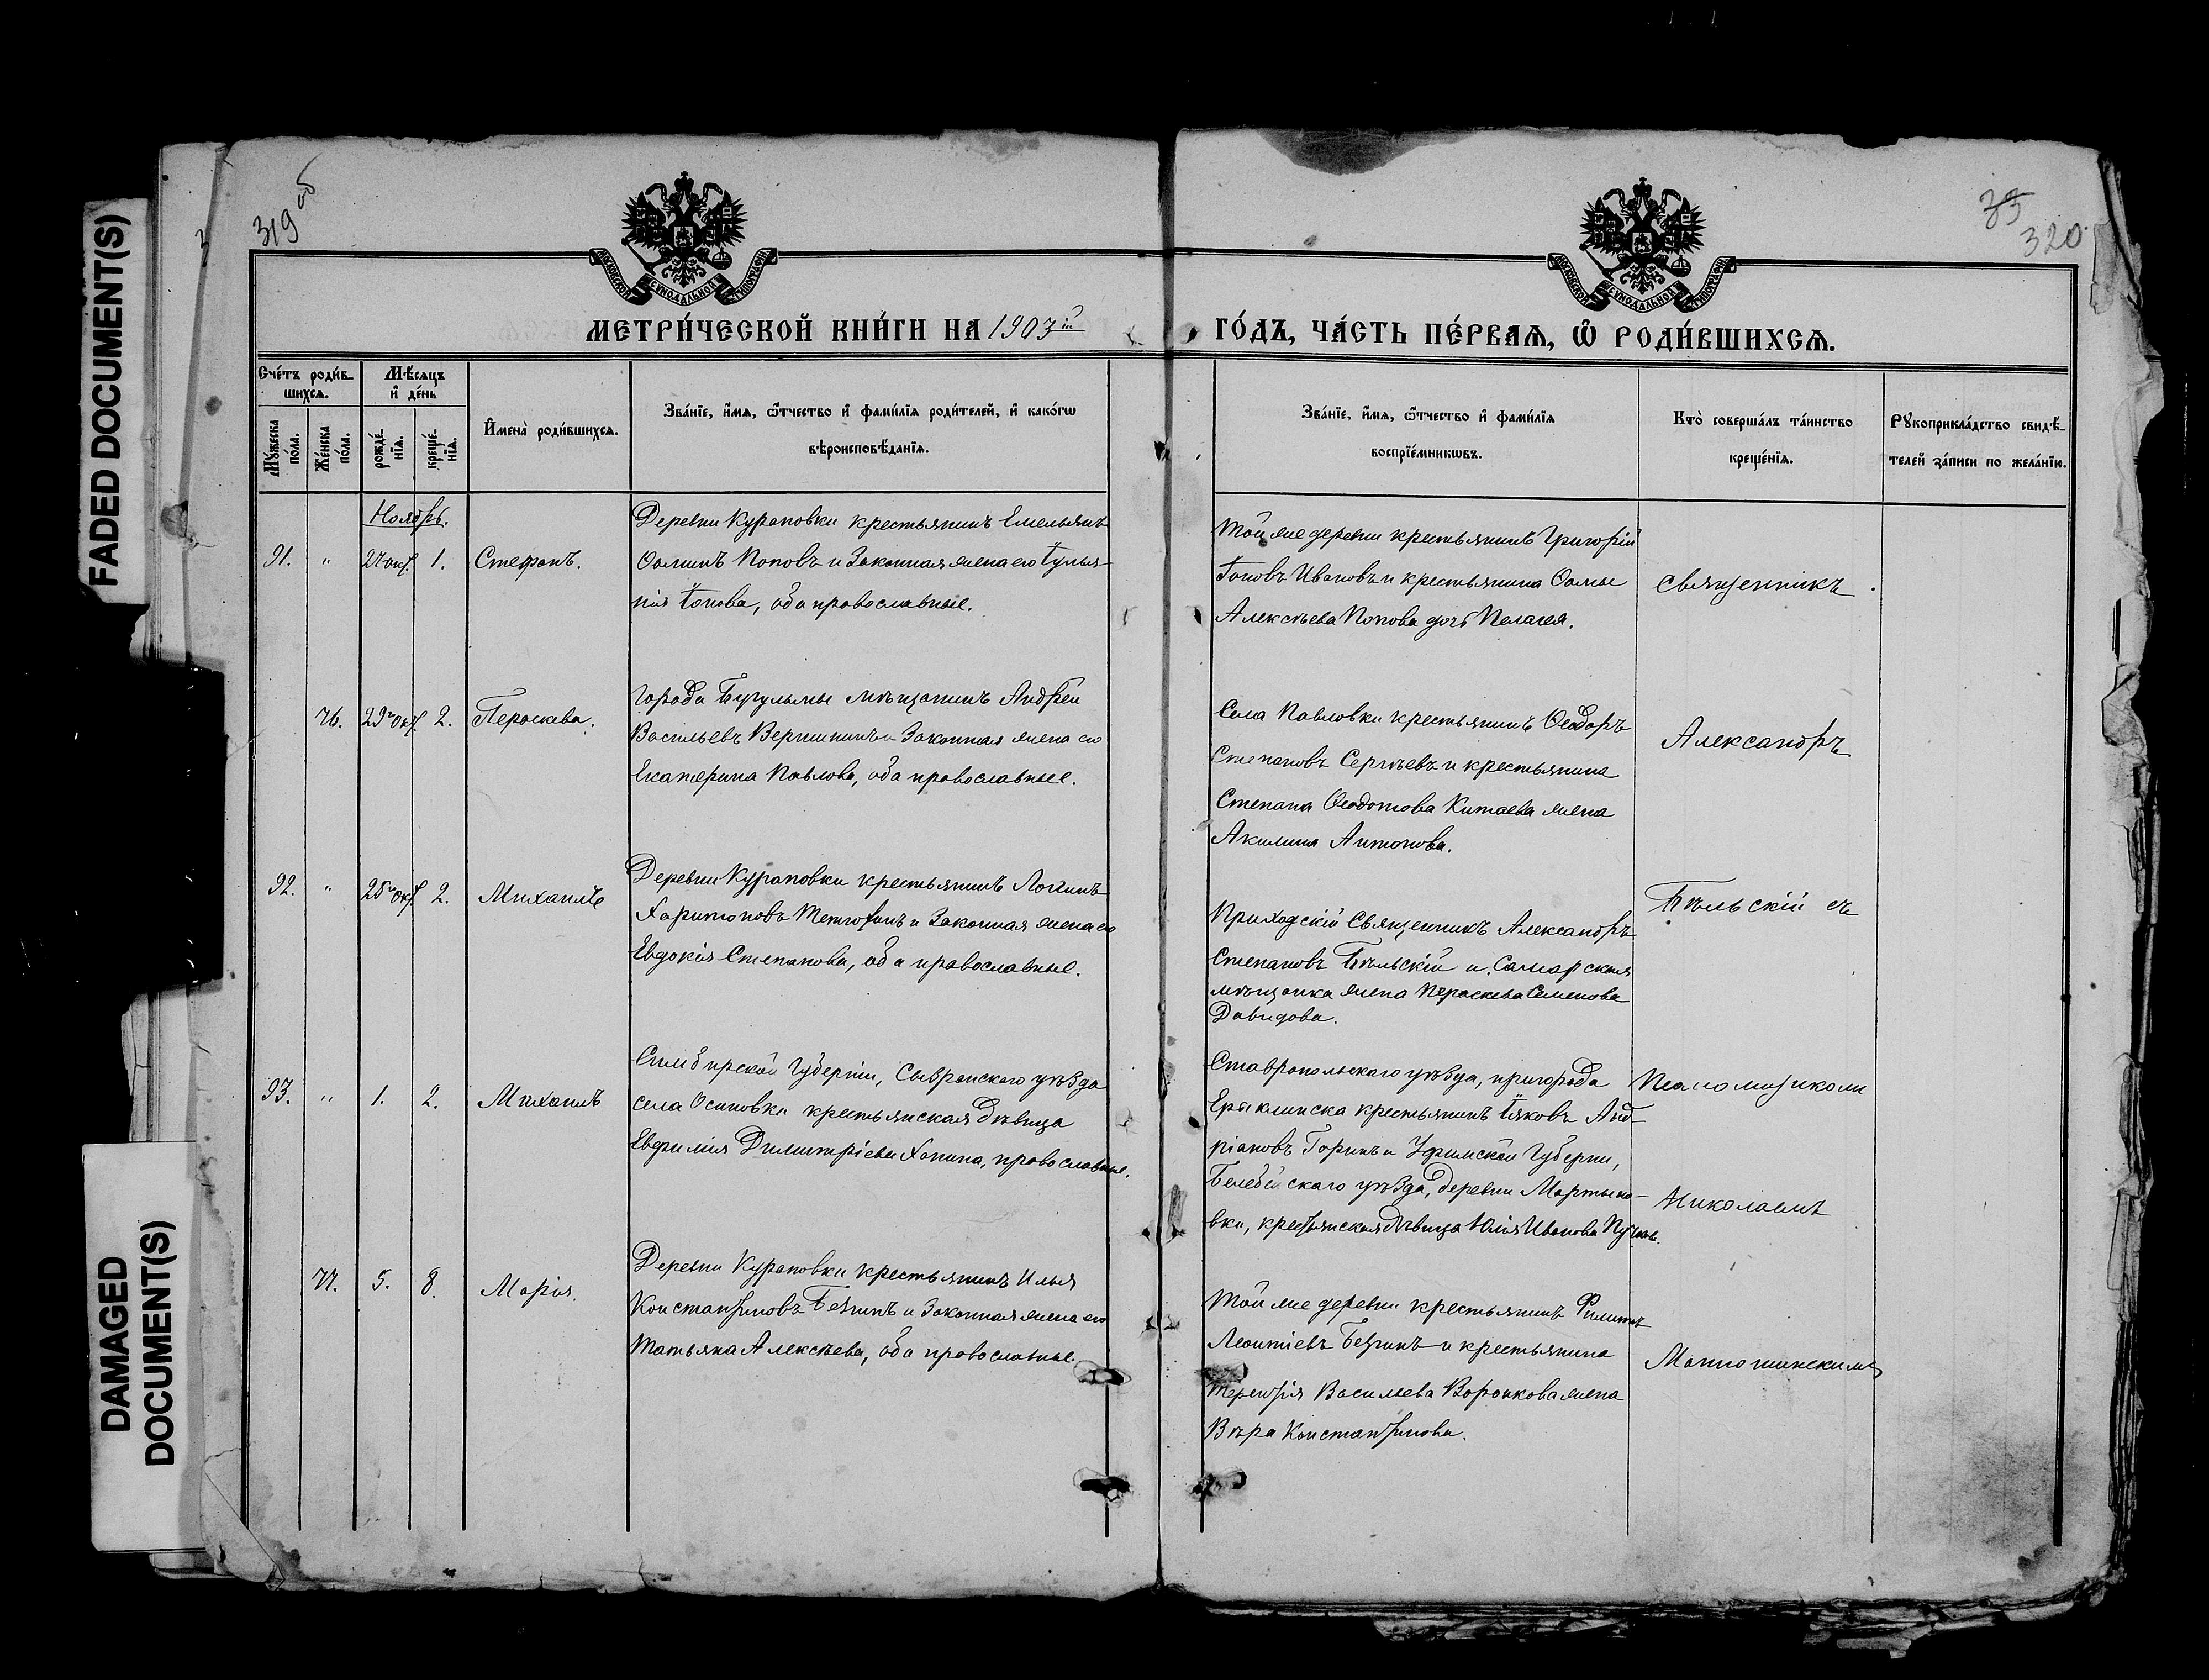 FADED DOCUMENT(S)
DAMAGED
DOCUMENT(S)
319 об
35
320.
МОСКОВСКОЙ СУНОДАЛЬНОЙ ТИПОГРАФІИ
МОСКОВСКОЙ СУНОДАЛЬНОЙ ТИПОГРАФІИ
МЕТРИ́ЧЕСКОЙ КНИ́ГИ НА 1903 й
ГО́ДЪ, ЧА́СТЬ ПЕ́РВАѦ, Ѡ РОДИ́ВШИХСѦ.
Сче́тъ роди́в-
шихсѧ.
Мѣ́сѧцъ
и де́нь
Мꙋ́жеска
по́ла.
Же́нска
по́ла.
рожде́-
нїѧ.
креще́-
нїѧ.
Имена̀ роди́вшихсѧ.
Зва́нїе, и́мѧ, ѻ́тчество и фами́лїѧ роди́телей, и како́гѡ
вѣроисповѣ́данїѧ.
Зва́нїе, и́мѧ, ѻ́тчество и фами́лїѧ
воспрїе́мникѡвъ.
Кто̀ соверша́лъ та́инство
креще́нїѧ.
Рꙋкоприкла́дство свидѣ́-
телей за́писи по жела́нїю.
Ноябрь.
91. " 27 окт. 1. Стефанъ.
Деревни Кураповки крестьянинъ Емельянъ
Ѳоминъ Поповъ и Законная жена его Іулья-
нія Попова, оба православные.
Той же деревни крестьянинъ Григорій
Поповъ Ивановъ и крестьянина Ѳомы
Алексѣева Попова дочь Пелагея.
Священникъ
76. 29 окт. 2. Параскева.
Города Бугульмы мѣщанинъ Андрей
Васильевъ Вершининъ и Законная жена его
Екатерина Павлова, оба православные.
Села Павловки крестьянинъ Ѳеодоръ
Степановъ Сергѣевъ и крестьянина
Степана Ѳеодотова Китаева жена
Акилина Антонова.
Александръ
92. " 25 окт. 2. Михаилъ
Деревни Кураповки крестьянинъ Логинъ
Харитоновъ и Законная жена его
Евдокія Степанова, оба православные.
Приходскій Священникъ Александръ
Степановъ Бѣльскій и Самарская
мѣщанка жена Параскева Семенова
Давидова.
Бѣльскій съ
93. " 1. 2. Михаилъ
Симбирской Губерніи, Сызранскаго уѣзда
села Осиповки крестьянская дѣвица
Евфимія Димитріева Ханина, православные.
Ставропольскаго уѣзда, пригорода
Ерыклинска крестьянинъ Іаковъ Анд-
ріановъ Горинъ и Уфимской Губерніи,
Белебейскаго уѣзда, деревни Мартыно-
вки, крестьянская дѣвица Юлія Иванова
Псаломщикомъ
Николаемъ
77. 5. 8. Марія.
Деревни Кураповки крестьянинъ Илья
Константиновъ Безгинъ и Законная жена его
Татьяна Алексѣева, оба православные.
Той же деревни крестьянинъ Филиппъ
Леонтіевъ Безгинъ и крестьянина
Терентія Васильева Воронкова жена
Вѣра Константинова.
Матюшинскимъ